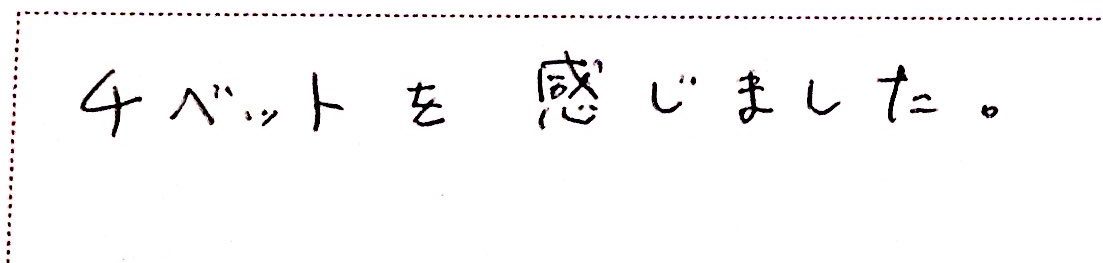 チベットを感じました。